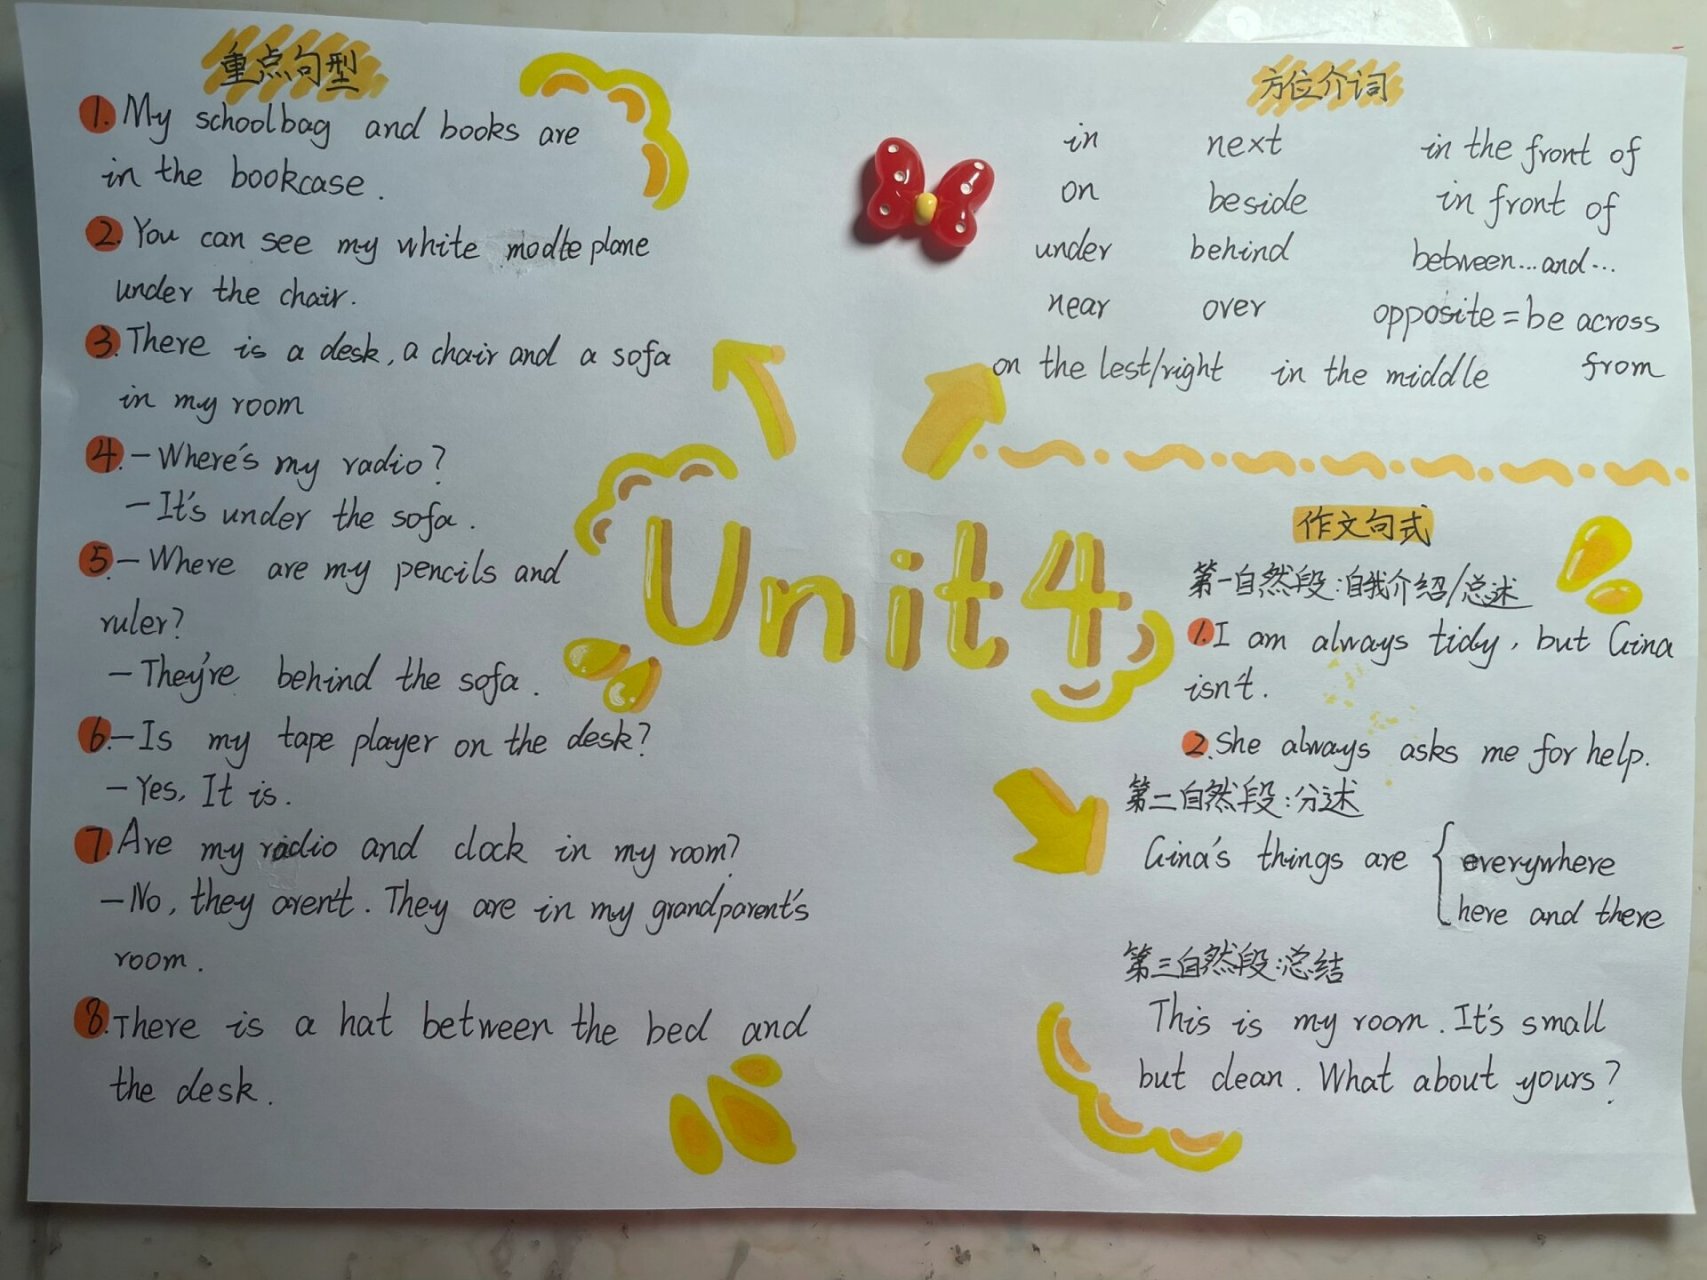 重点句型
1. My schoolbag and books are
in the bookcase.
2. You can see my white modte plane
under the chair.
3. There is a desk, a chair and a sofa
in my room
4. - Where's my radio?
- It's under the sofa.
5. - Where are my pencils and
ruler?
- They're behind the sofa.
6. - Is my tape player on the desk?
- Yes, It is.
7. Are my radio and clock in my room?
- No, they aren't. They are in my grandparent's
room.
8. There is a hat between the bed and
the desk.
Unit4
方位介词
in next in the front of
on beside in front of
under behind between...and...
near over opposite = be across
from
on the lest/right in the middle
作文句式
第一自然段:自我介绍/总述
1. I am always tidy, but Gina
isn't.
2. She always asks me for help.
第二自然段:分述
Gina's things are { everywhere
here and there
第三自然段:总结
This is my room. It's small
but clean. What about yours?